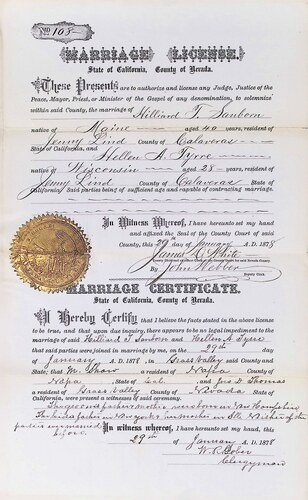 No. 108
MARRIAGE LICENSE.
State of California, County of Nevada.
These Presents are to authorize and license any Judge, Justice of the
Peace, Mayor, Priest, or Minister of the Gospel of any denomination, to solemnize
within said County, the marriage of Hilliard T. Sanborn
native of Maine aged 40 years, resident of
Jenny Lind County of Calaveras
State of California, and Hellen A. Tyrre
native of Wisconsin aged 28 years, resident of
Jenny Lind County of Calaveras State of
California. Said parties being of sufficient age and capable of contracting marriage.
In Witness Whereof, I have hereunto set my hand
and affixed the Seal of the County Court of said
County, this 29th day of January A. D. 1878
James D. White
By John Webber
Deputy Clerk.
MARRIAGE CERTIFICATE.
State of California, County of Nevada.
I Hereby Certify that I believe the facts stated in the above license
to be true, and that upon due inquiry, there appears to be no legal impediment to the
marriage of said Hilliard T. Sanborn and Hellen A. Tyrre
that said parties were joined by me, on the 29th day of
January A. D. 1878 in Grass Valley said County and
State; that M. Shaw a resident of Napa
County of Napa, State of Cal. and Geo. D. Thomas
a resident of Grass Valley County of Nevada State of
California, were present as witnesses of said ceremony.
The groom's father & mother were born in New Hampshire
The brides father in mother in
parties married before.
In witness whereof, I have hereunto set my hand, this
29th January A. D. 1878
Clergyman